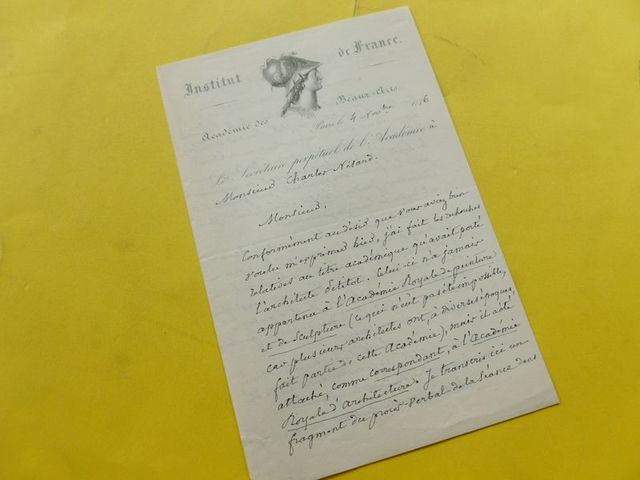 Institut de France.
Académie des Beaux-Arts
Paris le 4 Novbre 1876
Le Secrétaire perpétuel de l'Académie à
Monsieur Charles Nisard.
Monsieur,
Conformément au désir que vous aviez bien
voulu m'exprimer hier, j'ai fait les recherches
relatives au titre académique qu'avait porté
l'architecte Petitot. Celui-ci n'a jamais
appartenu à l'Académie Royale de peinture
et de Sculpture (ce qui n'eût pas été impossible,
car plusieurs architectes ont, à diverses époques,
fait partie de cette Académie), mais il a été
attaché, comme correspondant, à l'Académie
Royale d'Architecture. Je transcris ici un
fragment du procès-verbal de la Séance dans